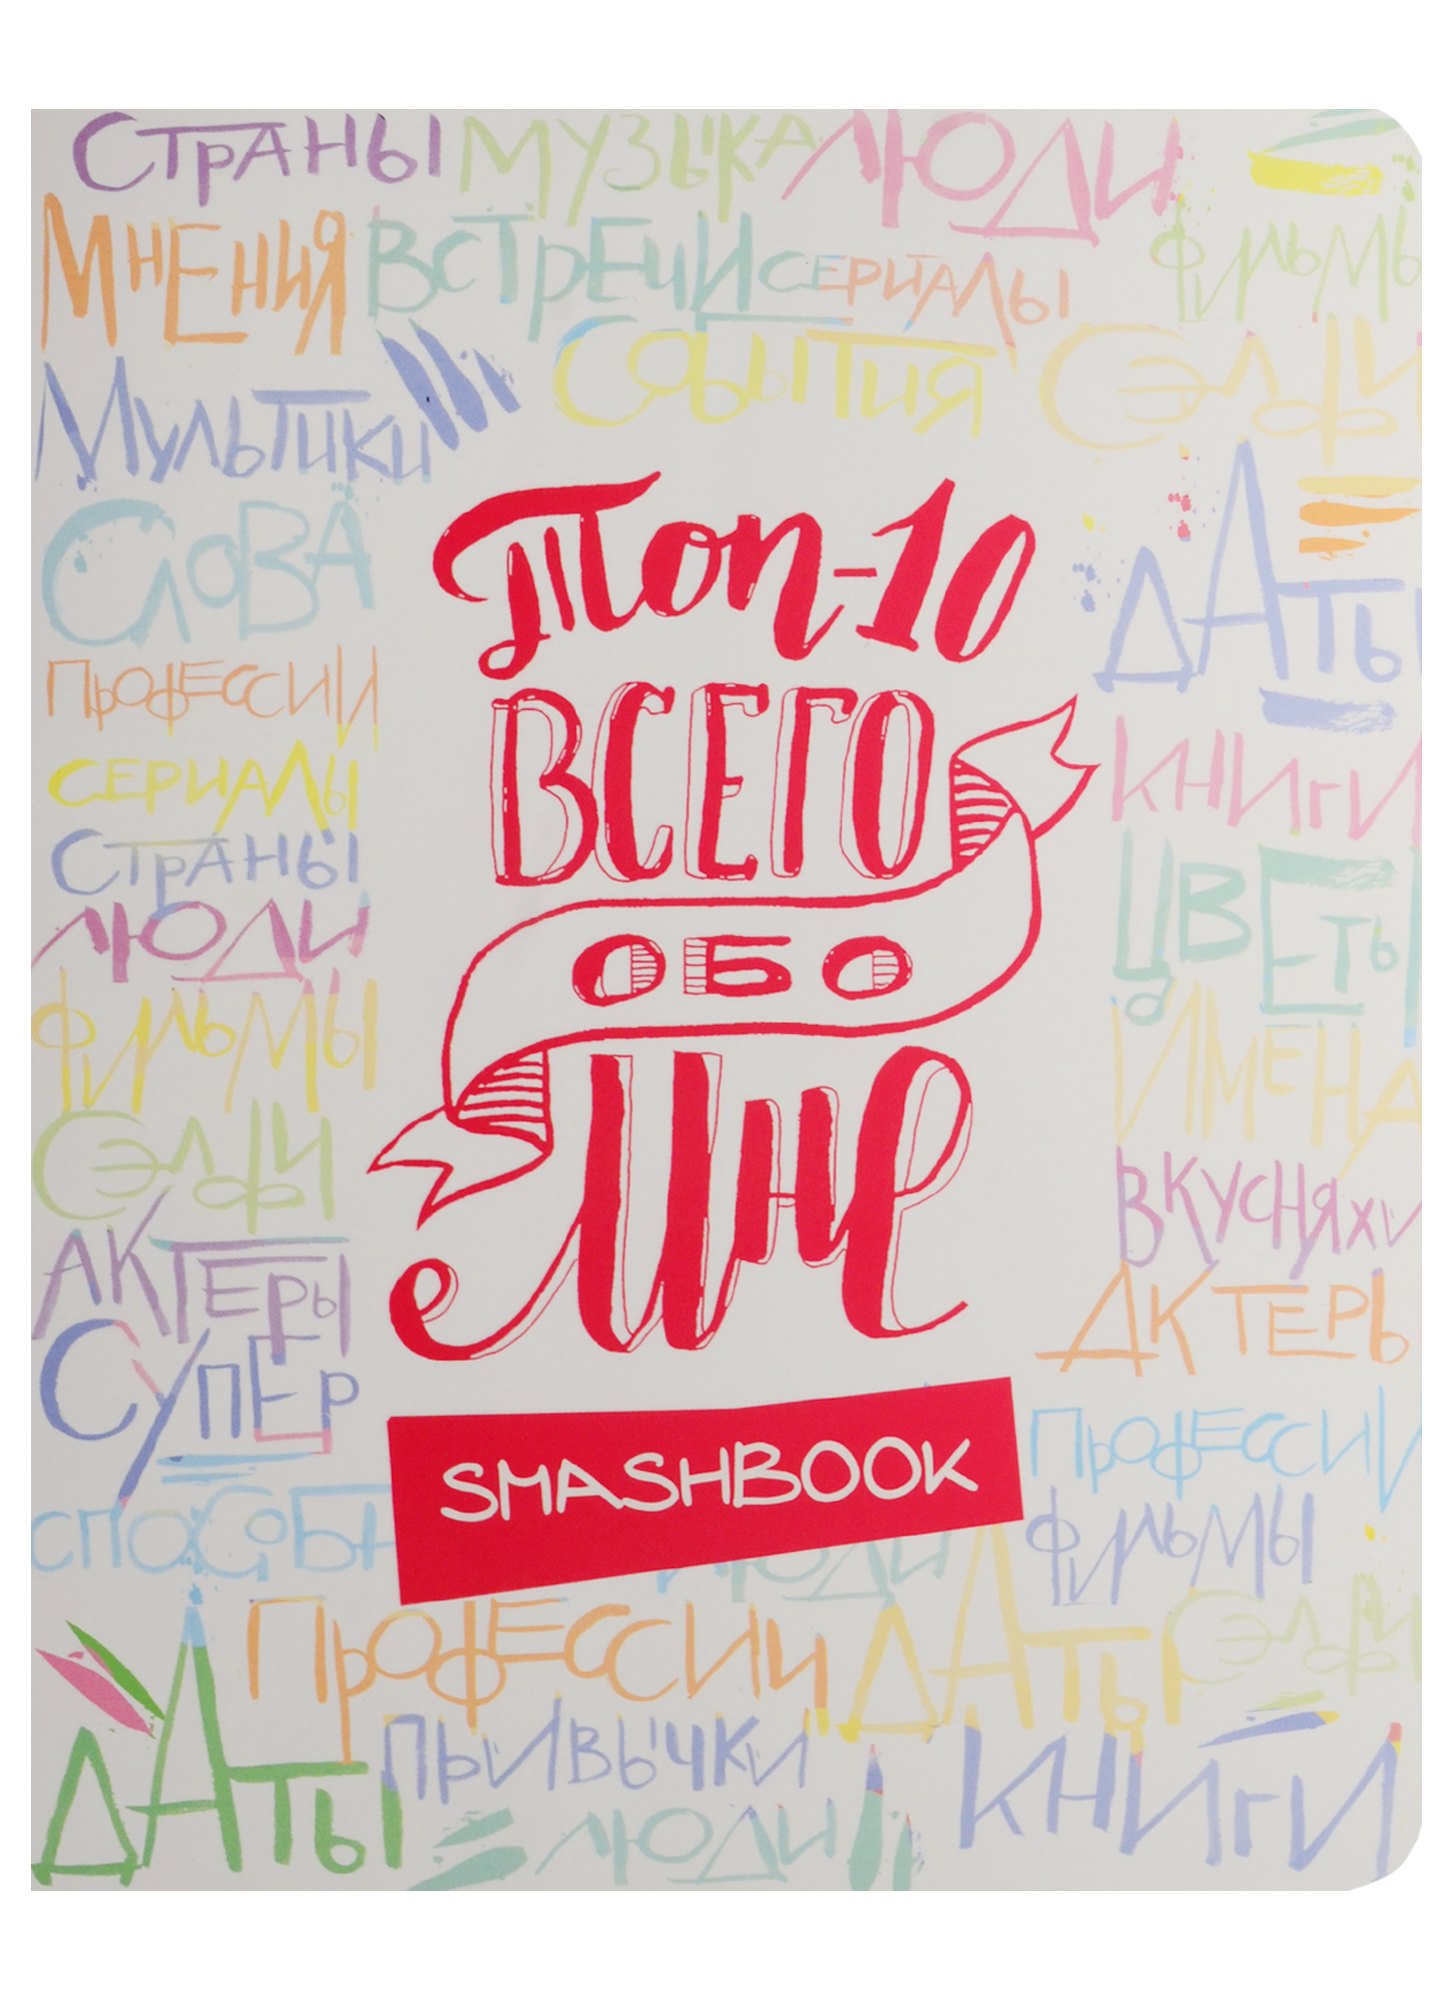 СТРАНЫ МУЗЫКА ЛЮДИ
МНЕНИЯ ВСТРЕЧИ СЕРИАЛЫ ФИЛЬМЫ
МУЛЬТИКИ СОБЫТИЯ СЭЛФИ
СЛОВА ДАТЫ
Топ-10
ВСЕГО
ОБО
Мне
SMASHBOOK
ПРОФЕССИИ
СЕРИАЛЫ
СТРАНЫ
ЛЮДИ
ФИЛЬМЫ
СЭЛФИ
АКТЕРЫ
СУПЕР
СПОСОБН
КНИГИ
ЦВЕТЫ
ИМЕНА
ВКУСНЯХИ
АКТЕРЬ
ПРОФЕССИИ
ФИЛЬМЫ
ЛЮДИ
ПРОФЕССИИ ДАТЫ СЭЛФИ
ДАТЫ ПРИВЫЧКИ КНИГИ
ЛЮДИ